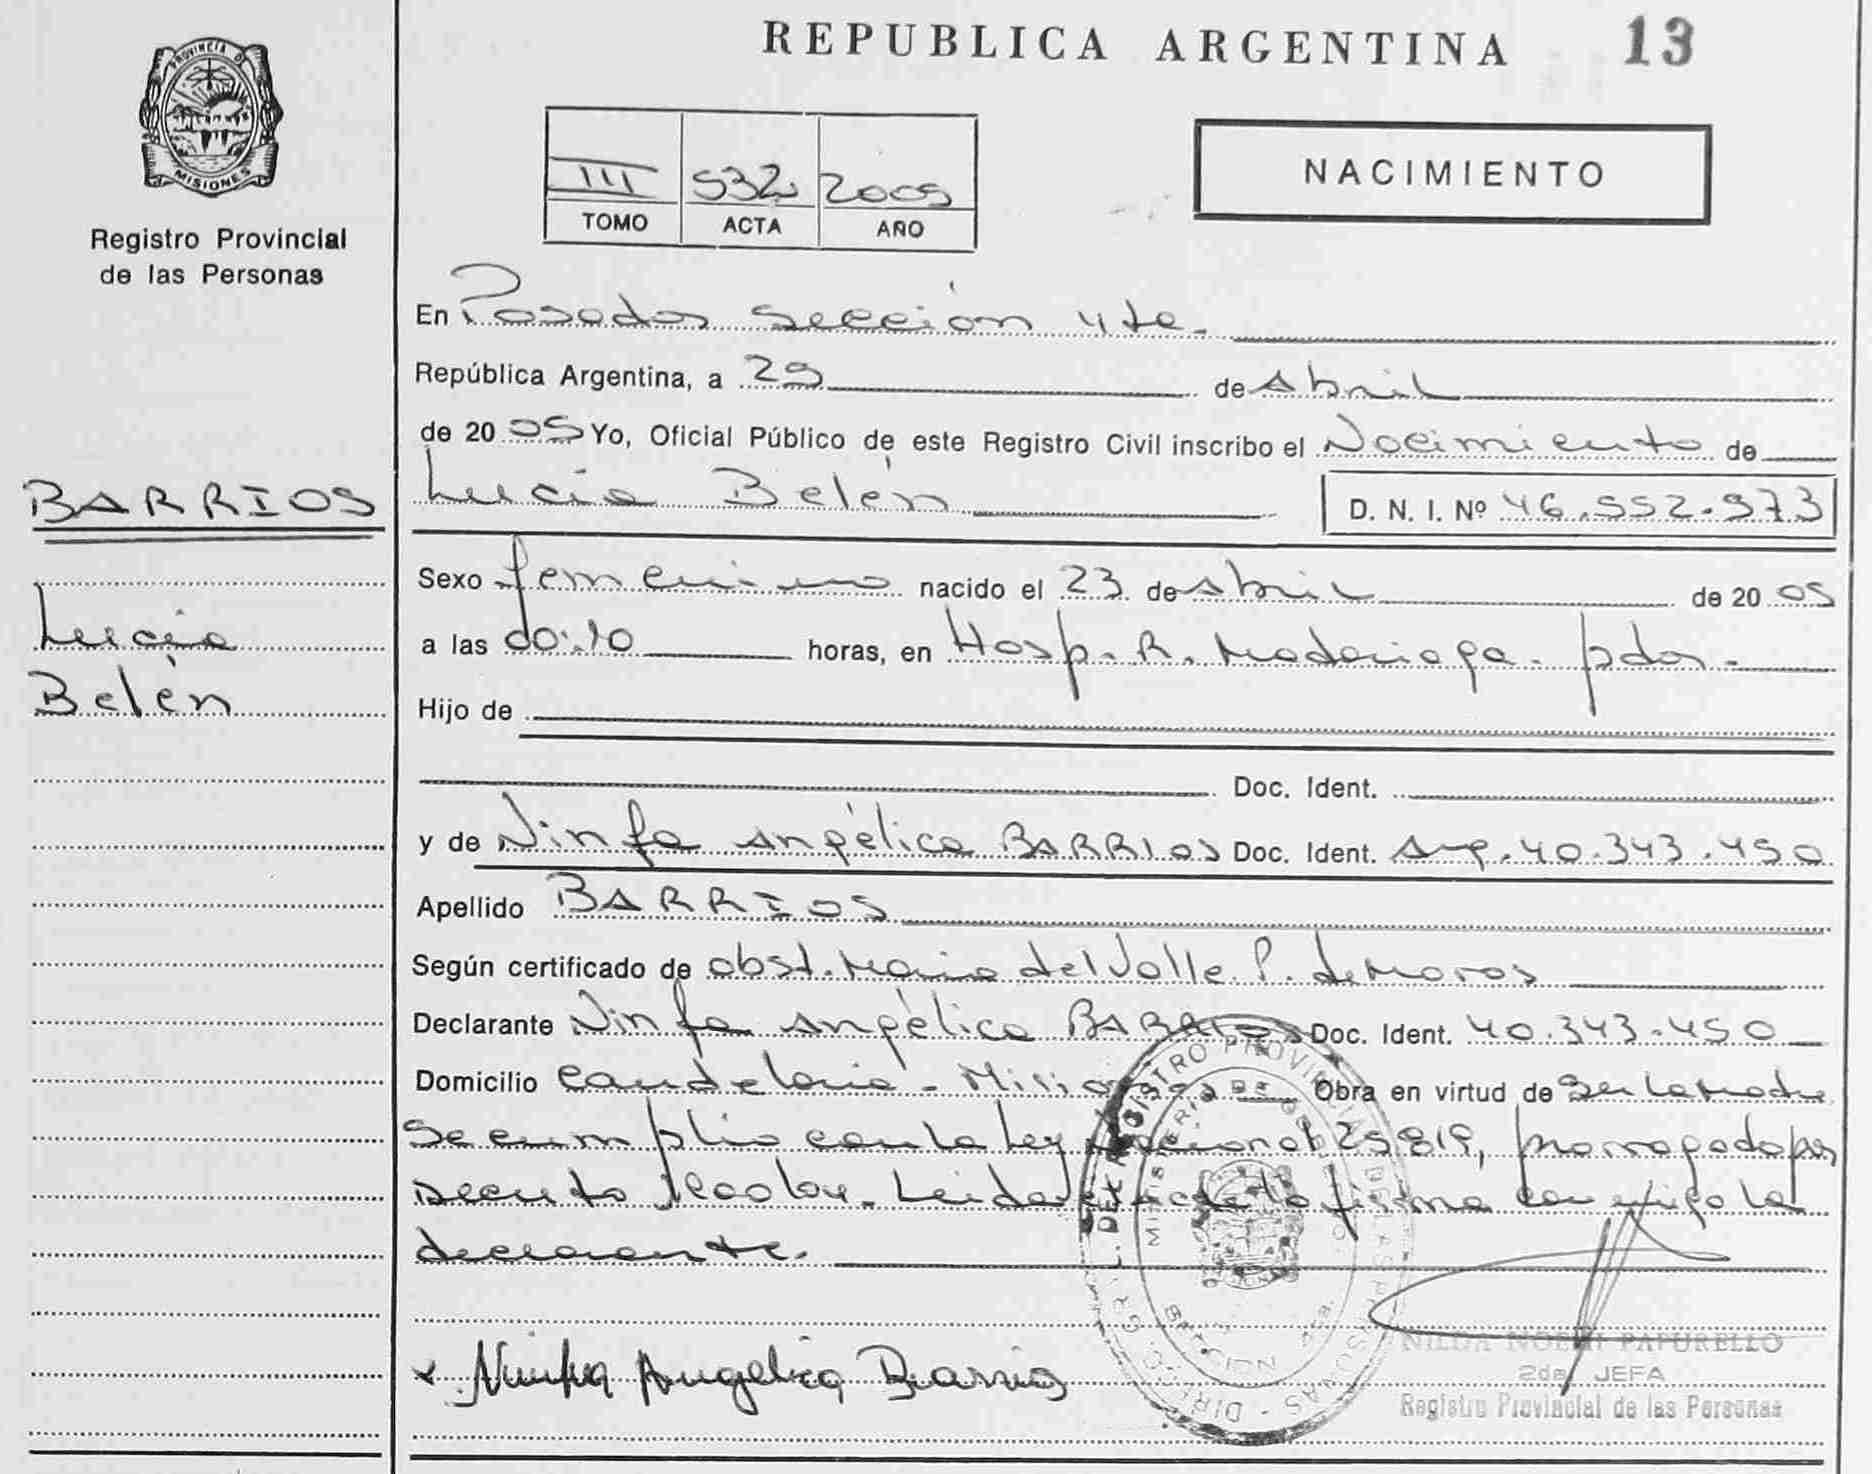 REPUBLICA ARGENTINA 13
PROVINCIA DE
MISIONES
Registro Provincial
de las Personas
III 532 2005
TOMO ACTA AÑO
NACIMIENTO
En Posadas sección 4ta.
República Argentina, a 29 de Abril
de 20 05 Yo, Oficial Público de este Registro Civil inscribo el Nacimiento de
BARRIOS
Lucía Belén D. N. I. Nº 46.552.973
Sexo femenino nacido el 23 de Abril de 20 05
Lucía
a las 00:10 horas, en Hosp. R. Madariaga. pdas.
Belén
Hijo de
Doc. Ident.
y de Ninfa Angélica BARRIOS Doc. Ident. Arg. 40.343.450
Apellido BARRIOS
Según certificado de obst. Maria del Valle P. de Moros
Declarante Ninfa Angélica BARRIOS Doc. Ident. 40.343.450
Domicilio Candelaria - Misiones Obra en virtud de ser la madre
se cumplio con la Ley nacional 25.819, prorrogado por
Decreto Leida el acta la firma conmigo la
declarante.
x Ninfa Angelica Barrios
NILDA NOEMI PAPURELLO
2da JEFA
Registro Provincial de las Personas